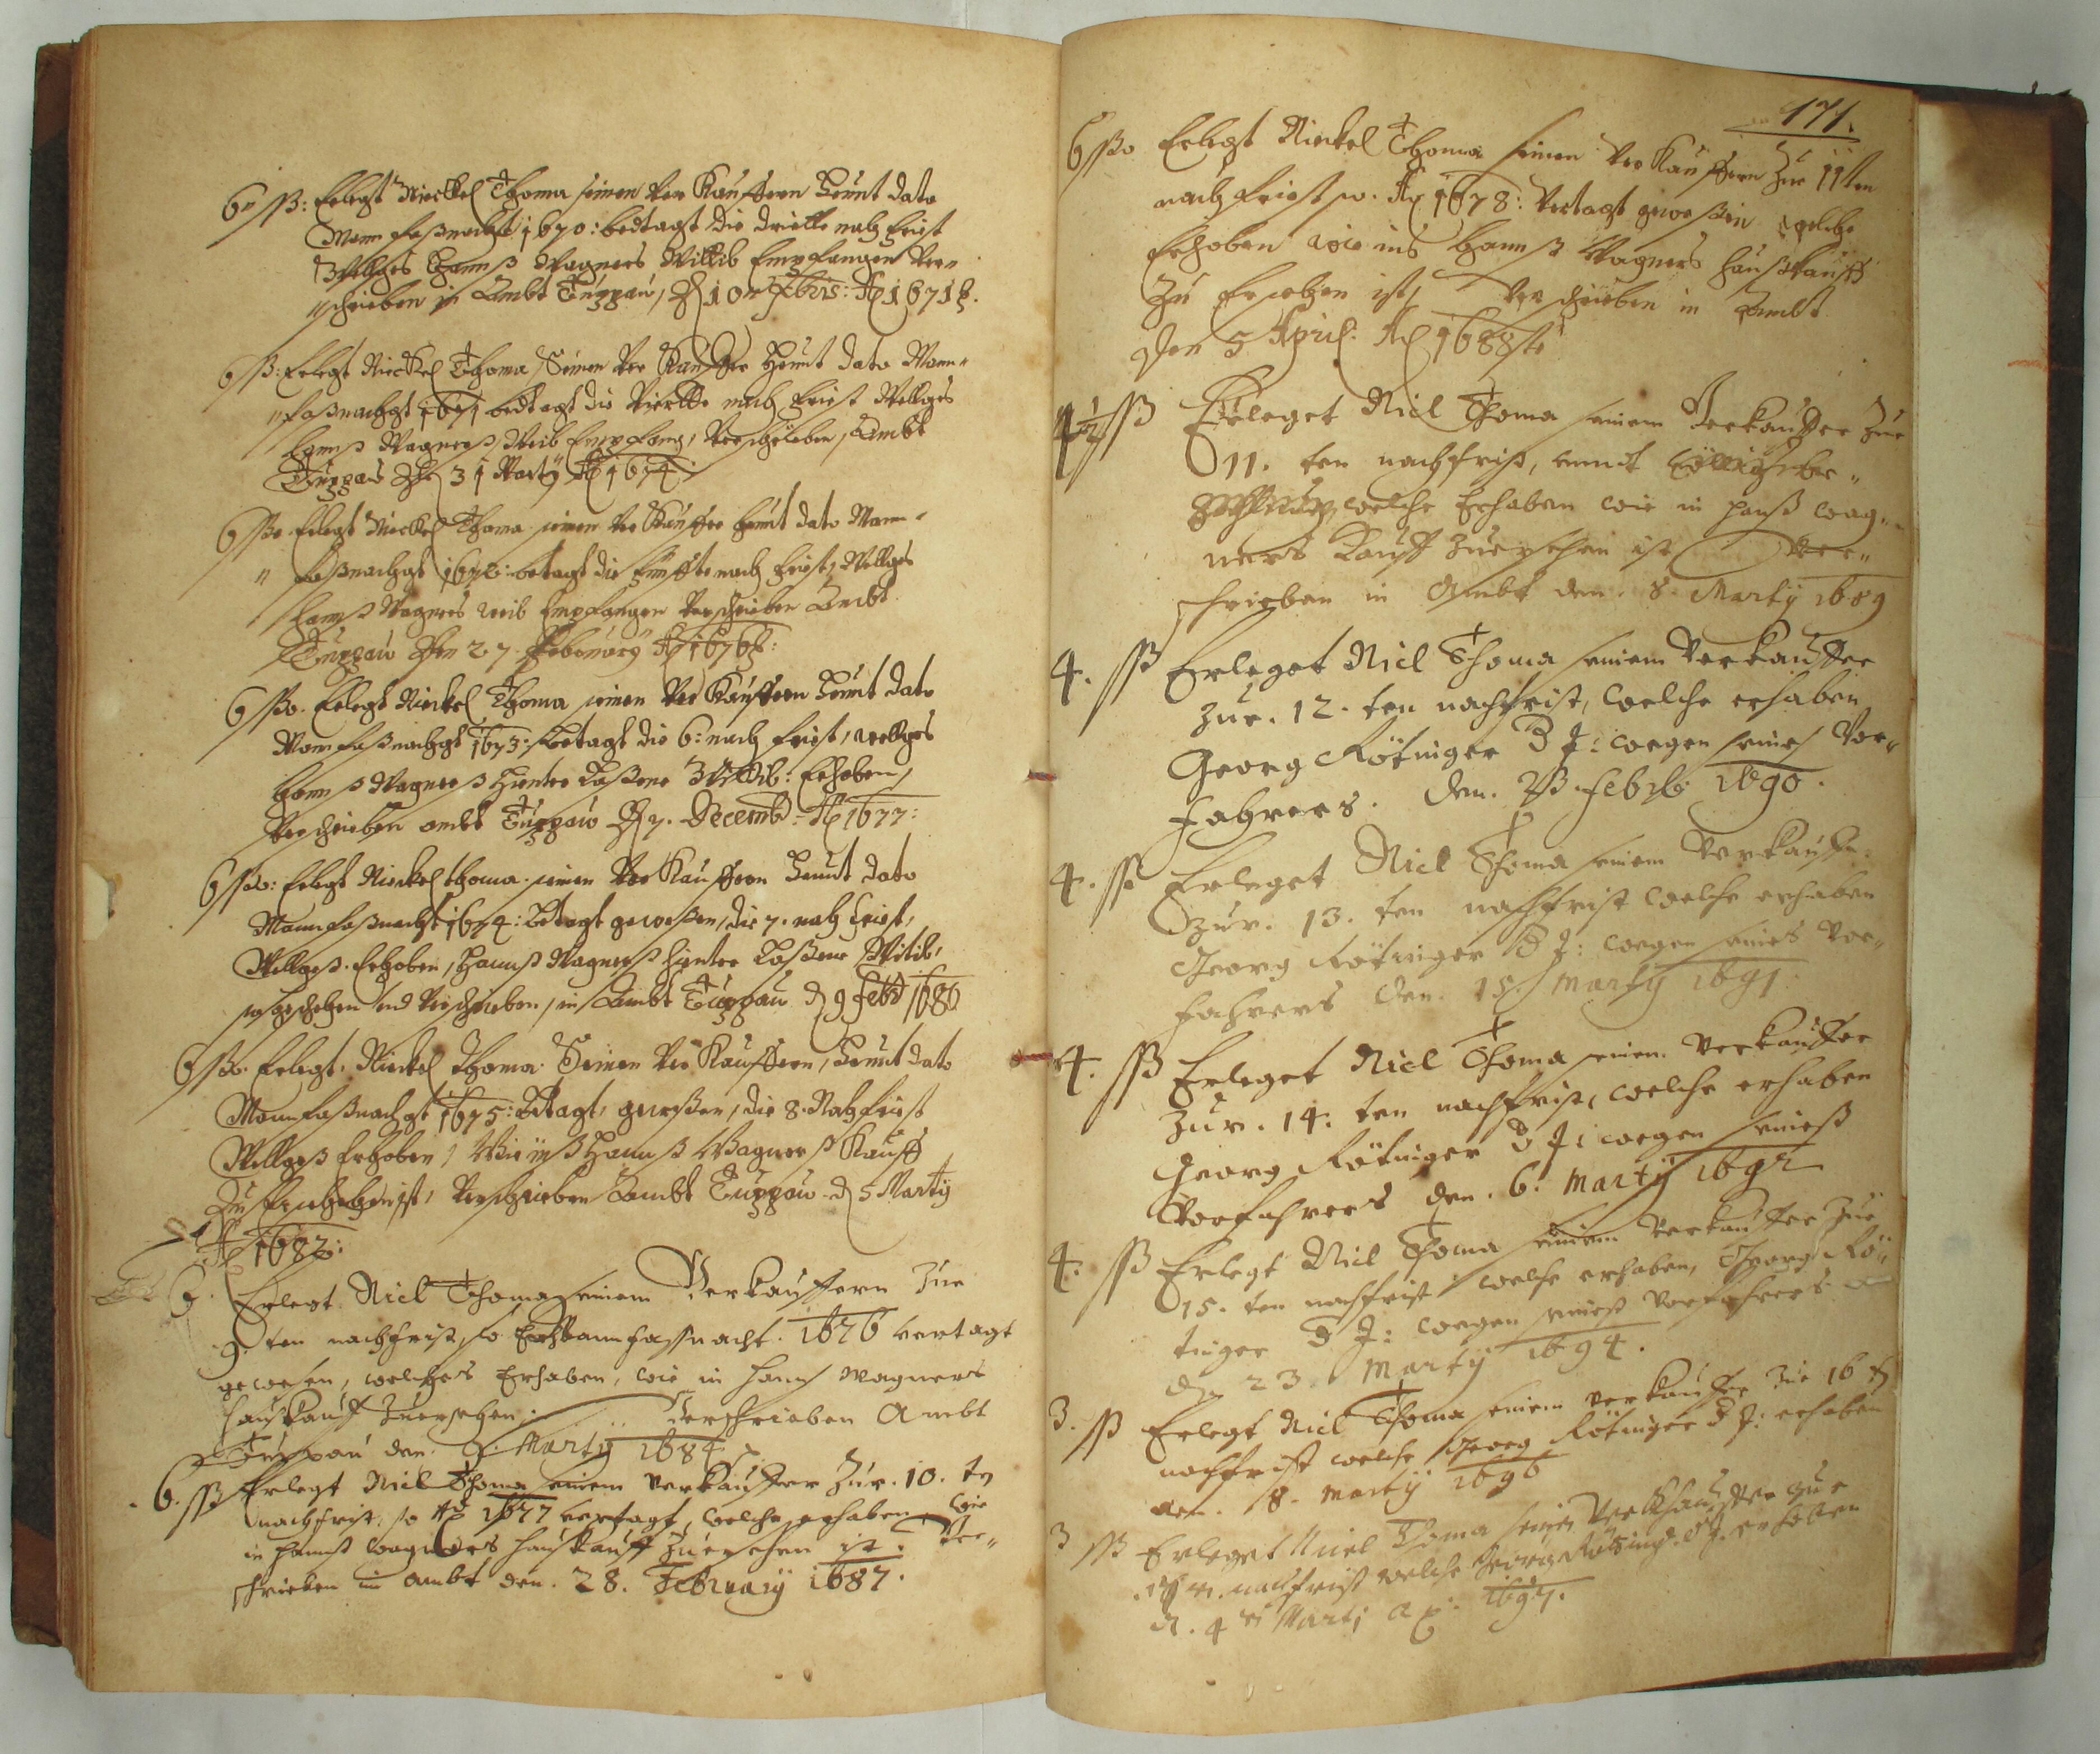 6 ß: Erlegt Nickel Thoma seinen Ver Kauffern heunt dato
Mann faßnacht 1670: bedtagt die dritte nach frist
Welliges Hannß Wagners Wittib Empfangen Ver=
schrieben in Ambt Tuppau, 10 1671
6 ß: Erlegt Nickel Thoma Seinen Ver Kauffer heunt dato Mann=
faßnacht 1671 bedtagt die Viertte nach frist Welliges
Hannß Wagnerß Weib Empfang, Verschrieben, Ambt
Tuppau den 31 Marty Ao 1674
6 ß Erlegt Nickel Thoma seinen Ver Kauffer heunt dato Mann=
faßnacht 1672: betagt die fünffte nach frist, Welliges
Hannß Wagners weib Empfangen Verschrieben Ambt
Tuppau den 27 February Ao 1676
6 ß. Erlegt Nickel Thoma seinen Ver Kauffern heunt dato
Mann faßnacht 1673: betagt die 6: nach frist, welliges
Hannß Wagnerß hinter Laßene Wittib: Erhoben,
Verschrieben ambt Tuppau 7. Decemb: Ao 1677:
6 ß: Erlegt Nickel Thoma seinen Ver Kauffern heunt dato
Mannfaßnacht 1674: betagt geweßen, die 7. nach frist,
Welligeß Erhoben, Hannß Wagnerß hinter Laßene Witib,
so geschehen und Verschrieben, in Ambt Tuppau 9 Feb 1680
6 ß. Erlegt Nickel Thoma Seinen Ver Kauffern, heunt dato
Mannfaßnacht 1675: betagt, geweßen, die 8. Nach frist
Welligeß Erhoben, Wie inß Hannß Wagnerß Kauff
Zu ist, Verschrieben Ambt Tuppau 5 Marty
Ao 1682:
6. Erlegt Nicl Thoma seinem Verkauffern Zue
9. ten nachfrist so Mannfassnacht. 1676 vertagt
gewesen, welches Erhaben, wie in Hanß Wagners
Haußkauff Zuersehen; Verschrieben Ambt
Tuppau den. Marty 1684
6. ß Erlegt Nicl Thoma seinem Verkauffer Zur. 10. t
nachfrist, so Ao 1677 vertagt, welche erhaben, wie
in Hannß wagners Hauskauff Zuersehen ist. Ver=
schrieben in Ambt den. 28. February 1687.
171.
6 ß Erlegt Nickel Thoma seinen Ver Kauffern Zue 11ten
nach frist so. Ao 1678: Vertagt geweßen welche
Erhoben wie ins Hannß Wagners Haußkauff
Zu Ersehen ist, Verschrieben in Ambt
Den 5 April: Ao 1688
4 1/2 ß Erleget Nicl Thoma seinem Verkauffer Zue
11. ten nachfrist, unndt
welche Erhaben wie in Hanß wag=
ners Kauff Zuersehen ist Ver=
schrieben in Ambt den. 8. Marty 1689
4. ß Erleget Nicl Thoma seinem Verkauffer
Zur. 12. ten nachfrist, welche erhaben
Georg Rötinger D J: wegen seines Vor=
fahrers. Den. Feb: 1690.
4. ß Erleget Nicl Thoma seinem Verkauffer
Zur. 13. ten nachfrist welche erhaben
Georg Rötinger D J: wegen seines Vor=
fahrers Den. 15. Marty 1691.
4. ß Erleget Nicl Thoma seinem Verkauffer
Zur. 14. ten nachfrist, welche erhaben
Georg Rötinger D J: wegen seineß
Vorfahrers den. 6. Marty 1692
4. ß Erlegt Nicl Thoma seinem Verkauffer Zue
15. ten nachfrist welche erhaben, Georg Rö=
tinger D J: wegen seineß Vorfahrers
23. Marty 1694.
3. ß Erlegt Nicl Thoma seinem Verkauffer Zue 16 t
nachfrist welche Georg Rötinger D J: erhaben
den. 8. Marty 1696
3 ß Erleget Niel Thoma seinen Verkhauffer zue
nachfrist welche Georg Röting. D J. erhoben
d. 4 Marti 1697.